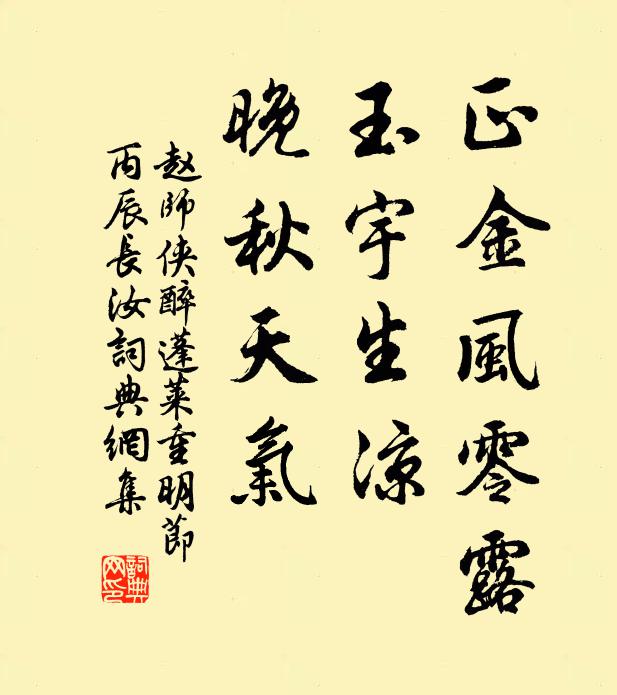 正金風零露
玉宇生凉
晚秋天氣
赵師侠醉蓬莱重明節
丙辰長汝詞典網集
詞典网印